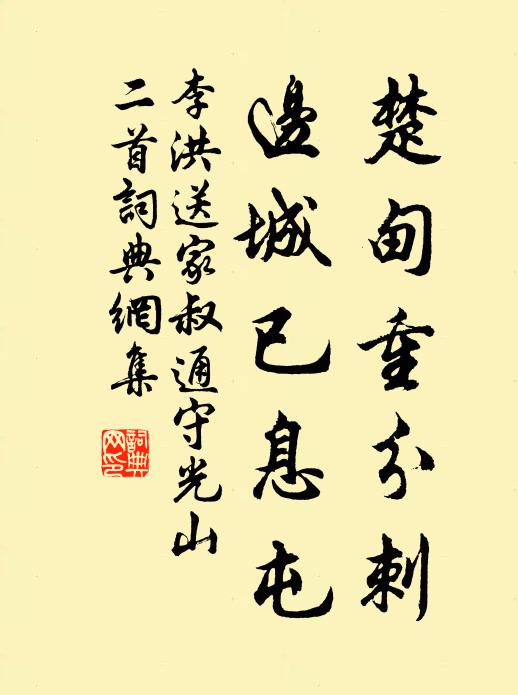 楚甸重分刺
邊城已息屯
李洪送家叔通守光山
二首詞典網集
詞典
网印